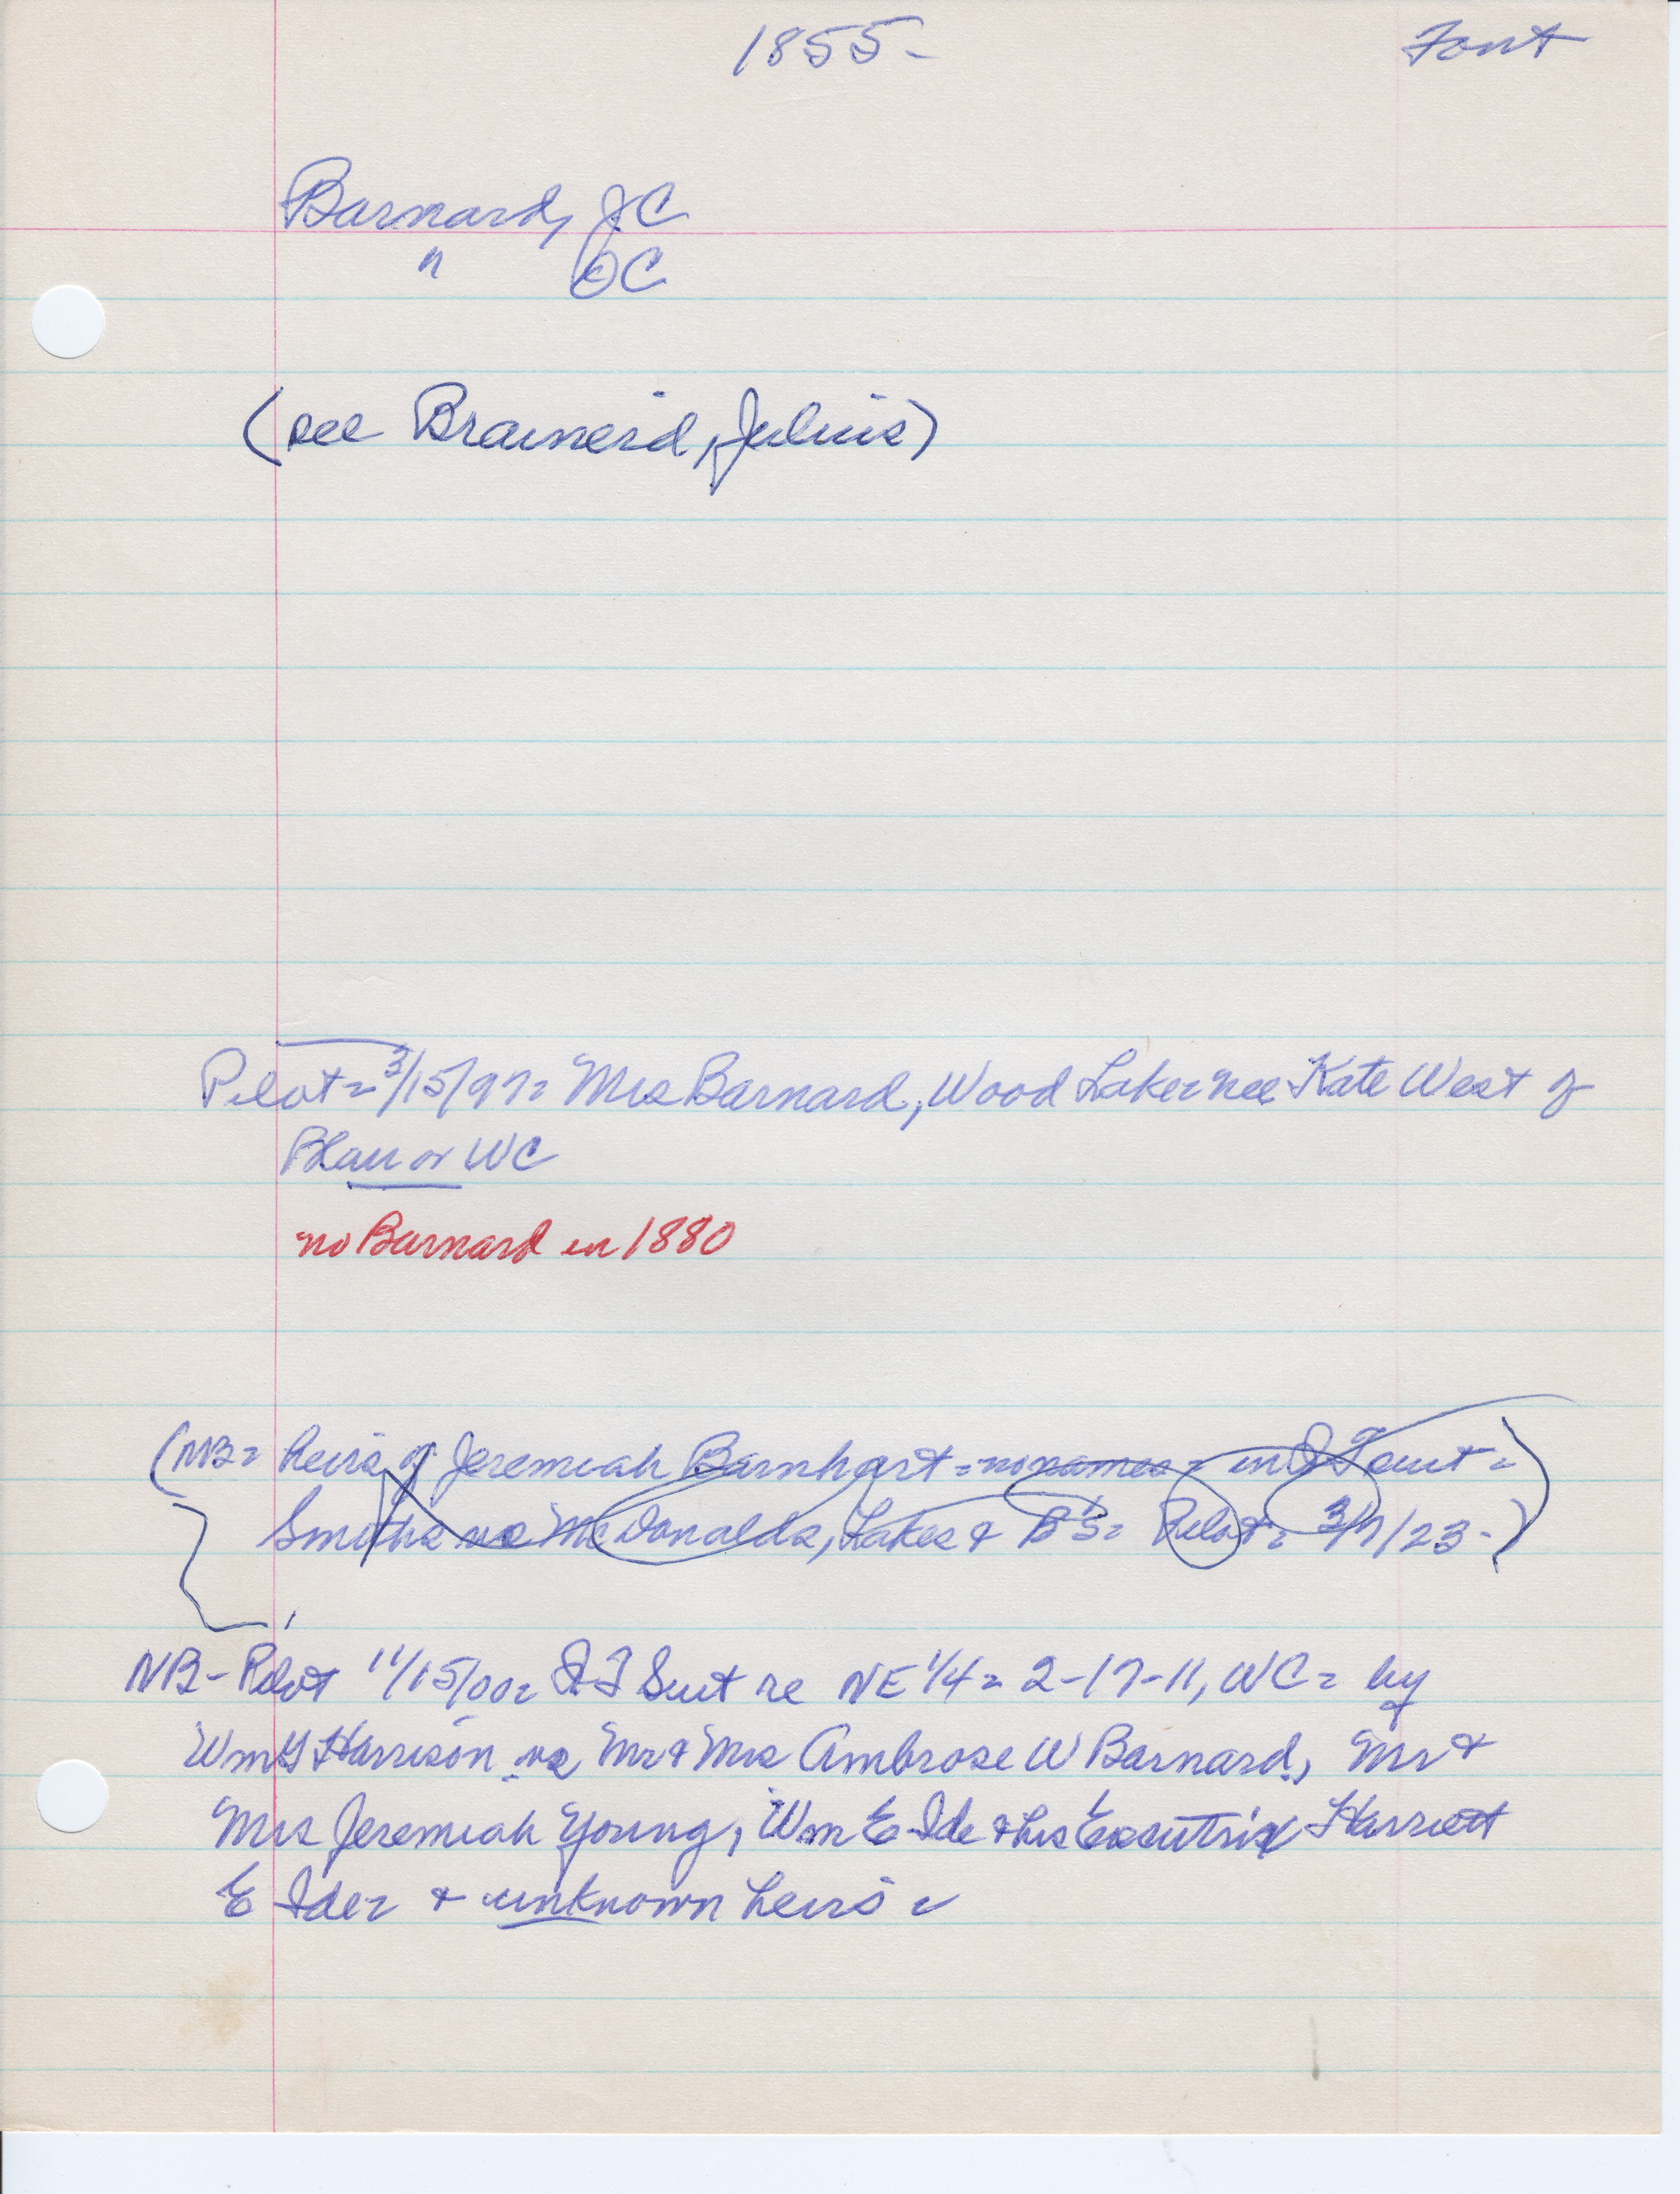 1855-
Font
Barnard, JC
" OC
(see Brainerd, Julius)
Pilot = 3/15/97 = Mrs Barnard, Wood Lake = nee Kate West of
Blair or WC
no Barnard in 1880
(NB = heirs of Jeremiah Barnhart = no names - in Q T suit =
Smiths vs McDonalds, Lakes & B's = Pilot = 3/7/23-)
NB - Pilot 11/15/00 = Q T Suit re NE 1/4 = 2-17-11, WC = by
Wm H Harrison vs Mr & Mrs Ambrose W Barnard, Mr &
Mrs Jeremiah Young, Wm E Ide & his Executrix Harriett
E Ide = & unknown heirs =